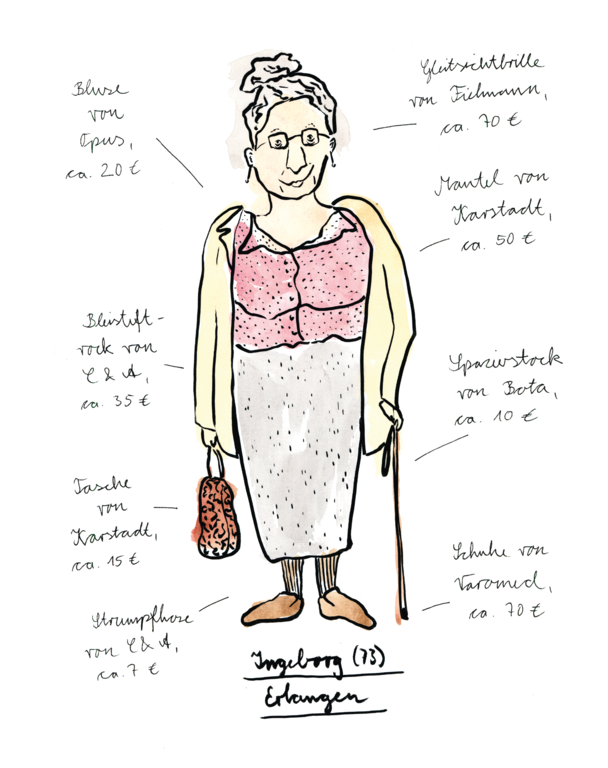 Bluse
von
Opus,
ca. 20 €
Gleitsichtbrille
von Fielmann,
ca. 70 €
Mantel von
Karstadt,
ca. 50 €
Bleistift-
rock von
C & A,
ca. 35 €
Spazierstock
von Bota,
ca. 10 €
Tasche
von
Karstadt,
ca. 15 €
Schuhe von
Varomed,
ca. 70 €
Strumpfhose
von C & A,
ca. 7 €
Ingeborg (73)
Erlangen